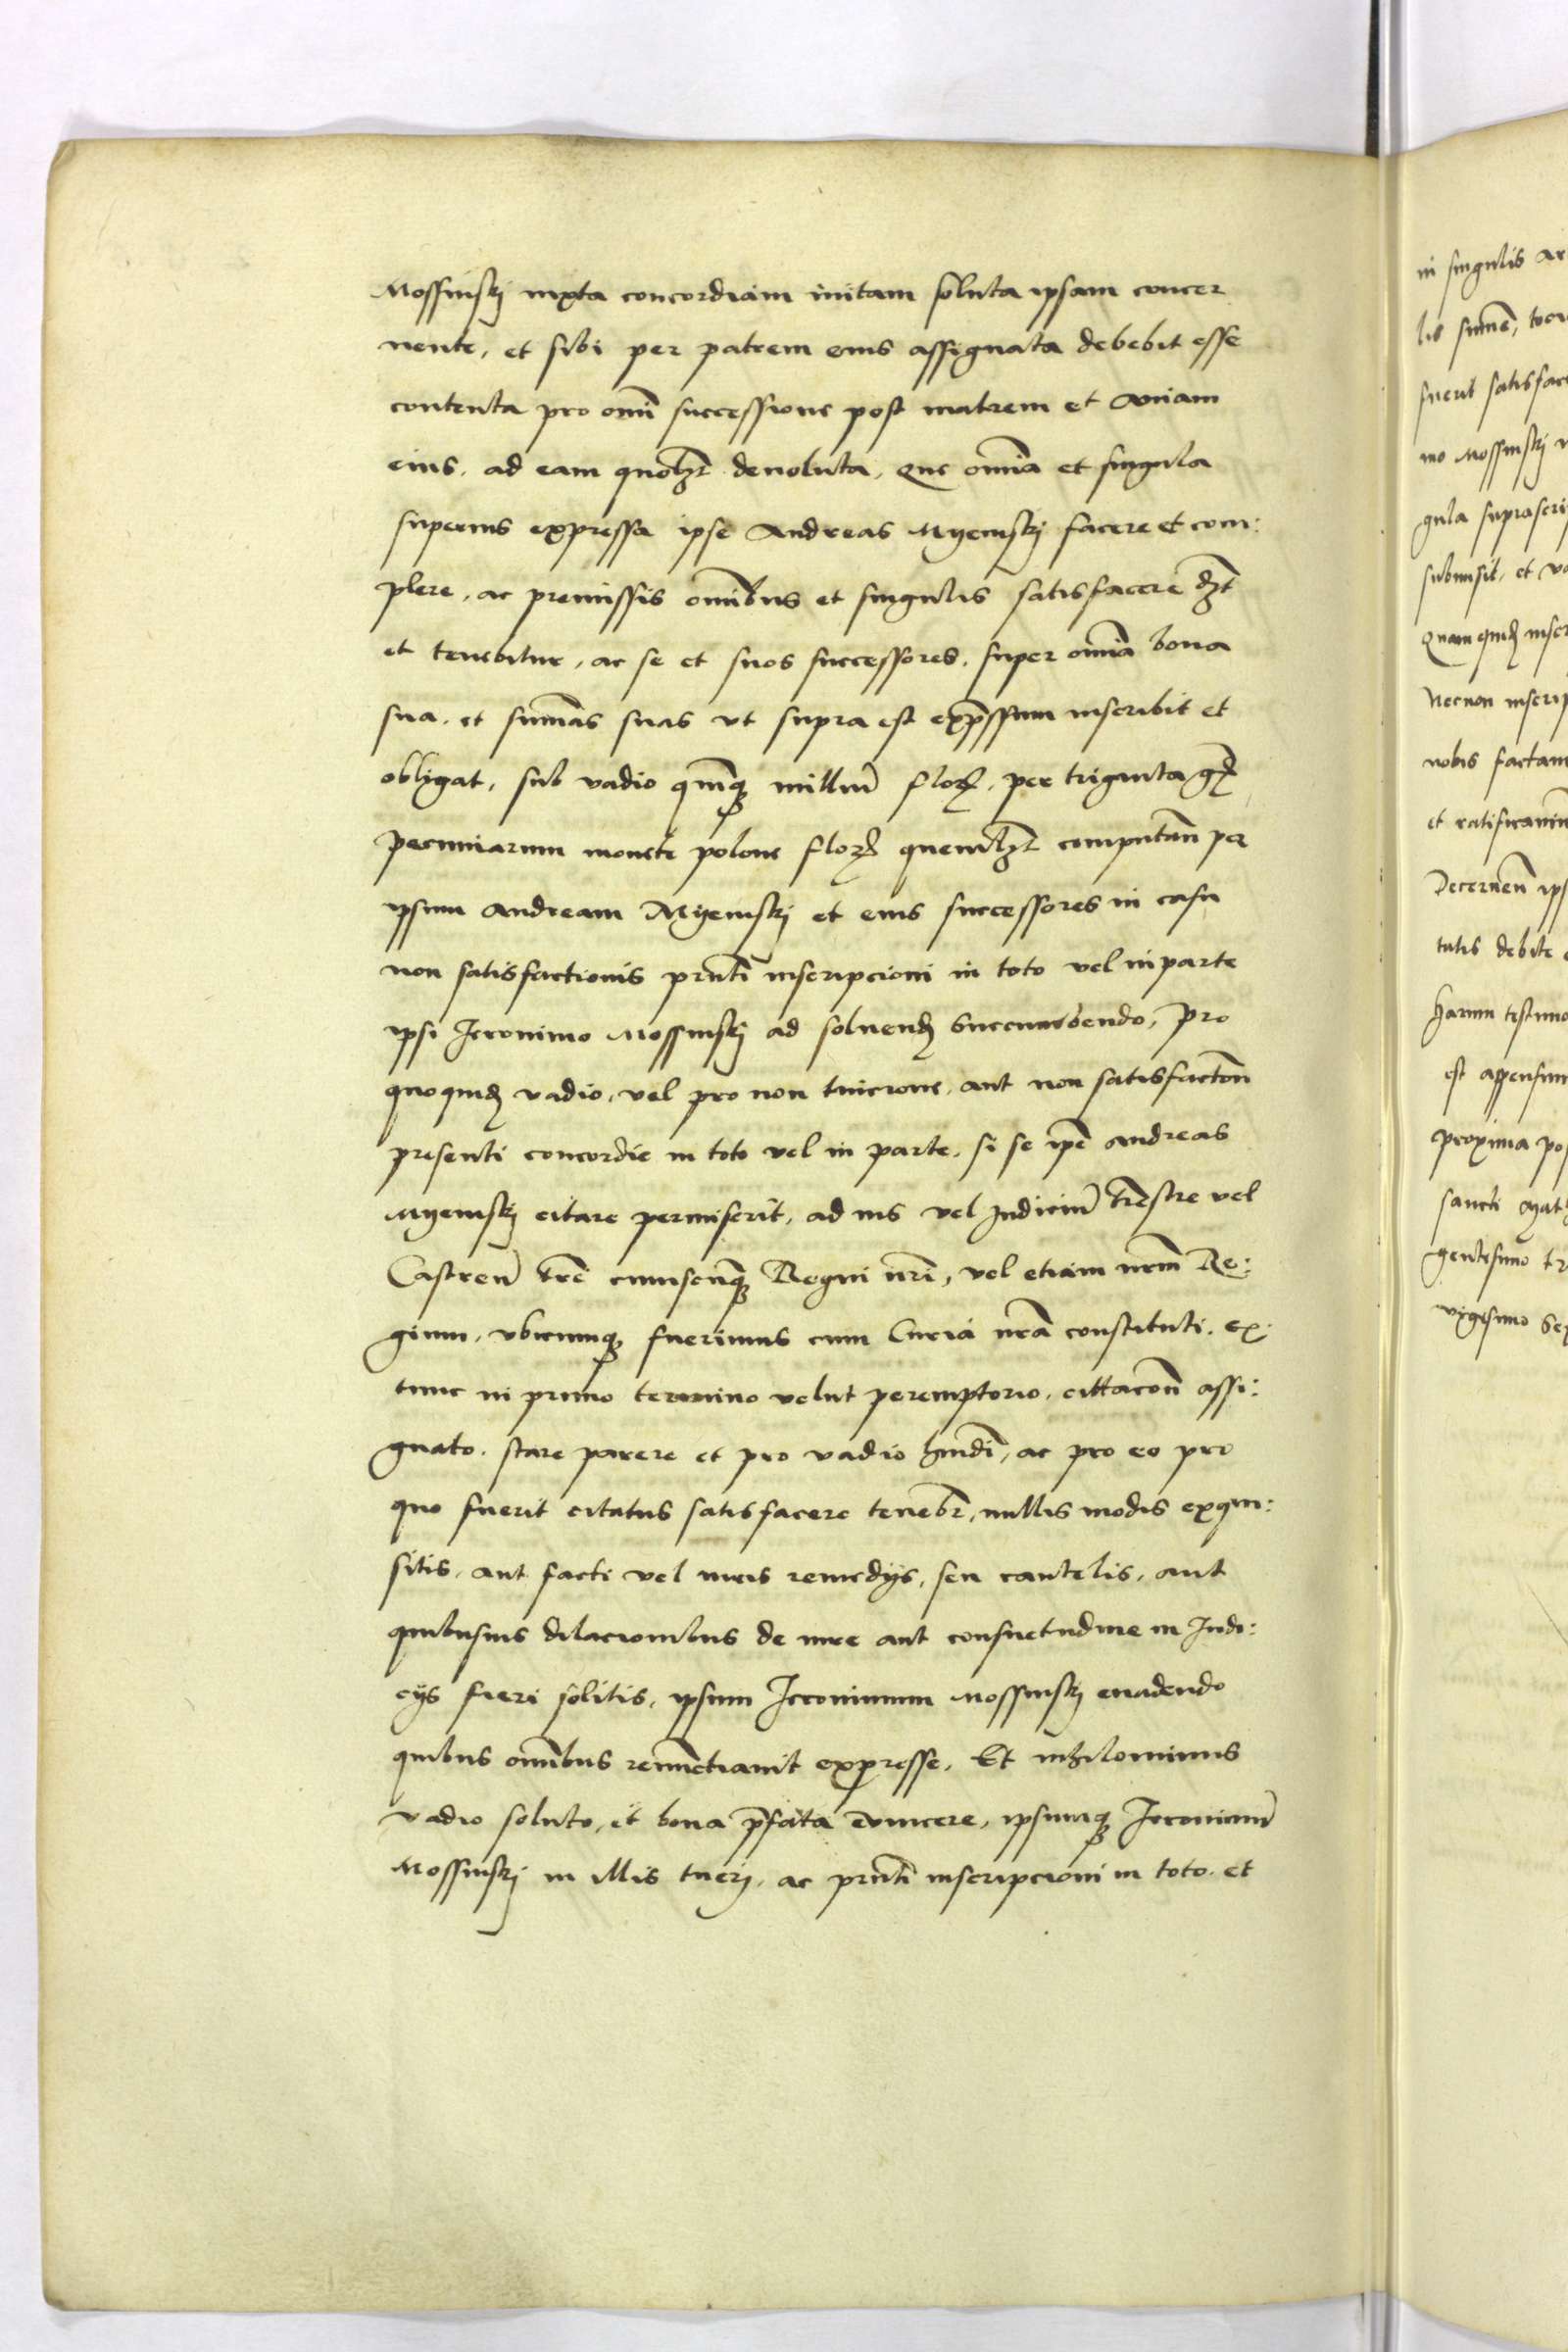 Mossinskj iuxta concordiam initam soluta ipsam concer
nente, et sibi per patrem eius assignata debebit esse
contenta pro omī successione post matrem et auiam
eius, ad eam quolꝫt deuoluta, que omīa et singula
superius expressa ipse Andreas Myemskj facere et com:
plere, ac premissis omībus et singulis satisfacere dꝫt
et tenebitur, ac se et suos successores, super omīa bona
sua, et sum̄as suas vt supra est exp̄ssum inscribit et
obligat, sub vadio quīqꝫ milliū floꝝ, per triginta gꝝ
pecuniarum monete polone floꝝ quemlꝫt computan̄ per
ipsum Andream Myemskj et eius successores in casu
non satisfactionis pn̄ti inscripcioni in toto vel in parte
ipsi Ieronimo Mossinskj ad soluendꝫ succumbendo, Pro
quoquidꝫ vadio, vel pro non tuicione, aut non satisfacton̄
presenti concordie in toto vel in parte, si se ip̄e Andreas
Myemskj citare permiserit, ad ius vel Iudiciū tr̄estre vel
Castren̄ tr̄e cuiuscunqꝫ Regni nr̄i, vel etiam nr̄m Re:
gium, vbicunqꝫ fuerimus cum Curia nr̄a constituti, ex
tunc in primo termino velut peremptorio, cittacōn assi:
gnato, stare parere et pro vadio hm̄di, ac pro eo pro
quo fuerit citatus satisfacere tenebr̄, nullis modis exqui:
sitis, aut facti vel iuris remedijs, seu cautelis, aut
quibusuis dilacionibus de iure aut consuetudine in Iudi:
cijs fieri solitis, ipsum Ieronimum Mossinskj euadendo
quibus omībus renūctiauit expresse, Et nihilominus
vadio soluto, et bona p̄fata euincere, ipsumqꝫ Ieronimū
Mossinskj in illis tuerj, ac pn̄ti inscripcioni in toto, et
in singulis ar
fuerit satisfac
mo Mossinskj
gula suprascri
submisit, et
Quam quidꝫ inscr
Necnon inscrip
nobis factam
et ratificauim
Decernen̄ ips
tatis debite
Harum testimo
est appensum
proxima pos
sancti Mat
gentesimo tr
vigesimo se